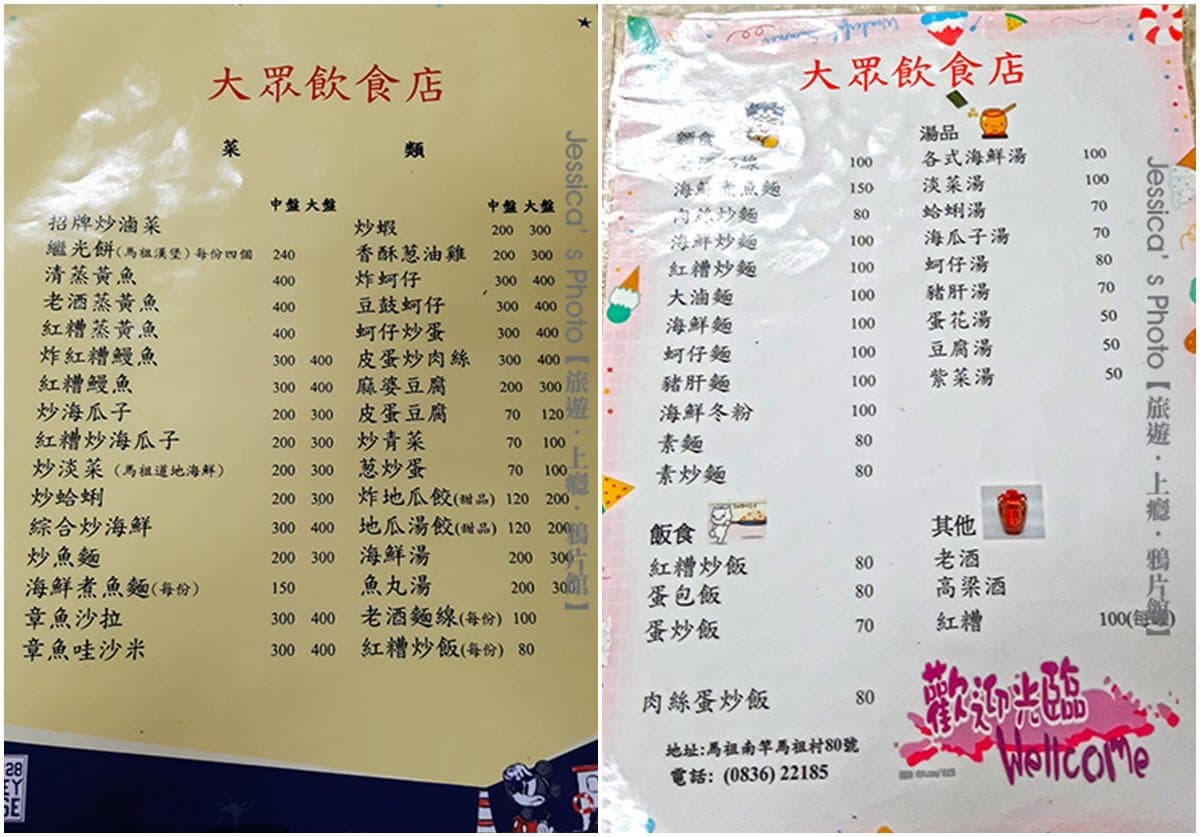 大眾飲食店
菜 類
中盤 大盤
招牌炒滷菜
繼光餅(馬祖漢堡)每份四個 240
清蒸黃魚 400
老酒蒸黃魚 400
紅糟蒸黃魚 400
炸紅糟鰻魚 300 400
紅糟鰻魚 300 400
炒海瓜子 200 300
紅糟炒海瓜子 200 300
炒淡菜(馬祖道地海鮮) 200 300
炒蛤蜊 200 300
綜合炒海鮮 300 400
炒魚麵 200 300
海鮮煮魚麵(每份) 150
章魚沙拉 300 400
章魚哇沙米 300 400
中盤 大盤
炒蝦 200 300
香酥蔥油雞 200 300
炸蚵仔 300 400
豆鼓蚵仔 300 400
蚵仔炒蛋 300 400
皮蛋炒肉絲 300 400
麻婆豆腐 200 300
皮蛋豆腐 70 120
炒青菜 70 100
蔥炒蛋 70 100
炸地瓜餃(甜品) 120 200
地瓜湯餃(甜品) 120 200
海鮮湯 200 300
魚丸湯 200 300
老酒麵線(每份) 100
紅糟炒飯(每份) 80
Jessica's Photo【旅遊‧上癮‧鴉片館】
大眾飲食店
麵食
100
海鮮煮魚麵 150
肉絲炒麵 80
海鮮炒麵 100
紅糟炒麵 100
大滷麵 100
海鮮麵 100
蚵仔麵 100
豬肝麵 100
海鮮冬粉 100
素麵 80
素炒麵 80
湯品
各式海鮮湯 100
淡菜湯 100
蛤蜊湯 70
海瓜子湯 70
蚵仔湯 80
豬肝湯 70
蛋花湯 50
豆腐湯 50
紫菜湯 50
飯食
紅糟炒飯 80
蛋包飯 80
蛋炒飯 70
肉絲蛋炒飯 80
其他
老酒
高梁酒
紅糟 100(每罐)
地址:馬祖南竿馬祖村80號
電話: (0836) 22185
歡迎光臨
Wellcome
Jessica's Photo【旅遊‧上癮‧鴉片館】